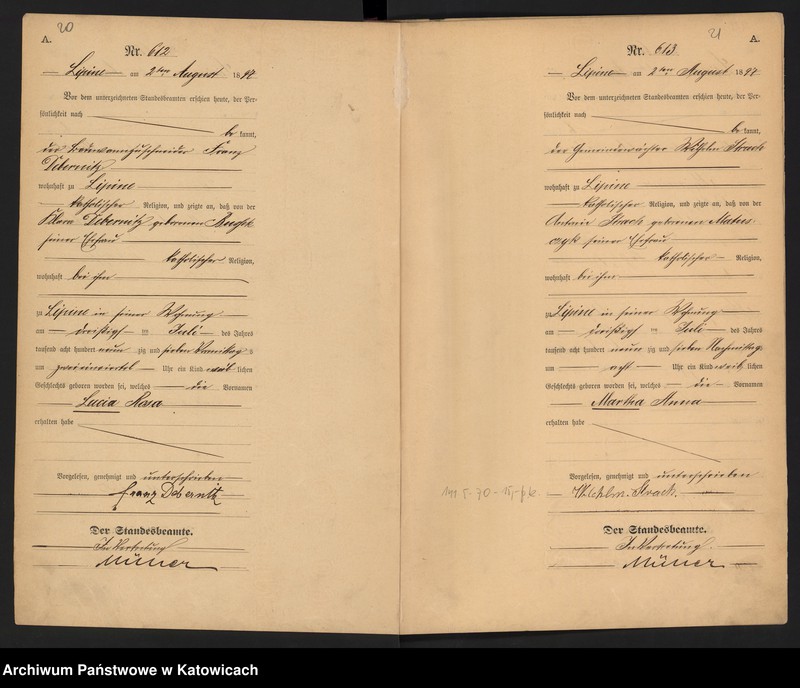 20
A.
Nr. 612
Lipine am 2ten August 1897
Vor dem unterzeichneten Standesbeamten erschien heute, der Per-
sönlichkeit nach
be kannt,
der Franz
Debernitz
wohnhaft zu Lipine
katholischer Religion, und zeigte an, daß von der
Klara Debernitz geborenen
seiner Ehefrau
katholischer Religion,
wohnhaft bei ihm
zu Lipine in seiner Wohnung
am dreißigsten Juli des Jahres
tausend acht hundert neun zig und sieben Vormittag s
um Uhr ein Kind weib lichen
Geschlechts geboren worden sei, welches die Vornamen
Lucia Rosa
erhalten habe
Vorgelesen, genehmigt und unterschrieben
Franz Debernitz
Der Standesbeamte.
In Vertretung
Müller
21
A.
Nr. 613
Lipine am 2ten August 1897
Vor dem unterzeichneten Standesbeamten erschien heute, der Per-
sönlichkeit nach
be kannt,
der Gemeindewächter Wilhelm Strach
wohnhaft zu Lipine
katholischer Religion, und zeigte an, daß von der
Antonie Strach geborenen Matus-
czyk seiner Ehefrau
katholischer Religion,
wohnhaft bei ihm
zu Lipine in seiner Wohnung
am dreißigsten Juli des Jahres
tausend acht hundert neun zig und sieben Nachmittags
um acht Uhr ein Kind weib lichen
Geschlechts geboren worden sei, welches die Vornamen
Martha Anna
erhalten habe
Vorgelesen, genehmigt und unterschrieben
Wilhelm Strach
Der Standesbeamte.
In Vertretung.
Müller
Archiwum Państwowe w Katowicach